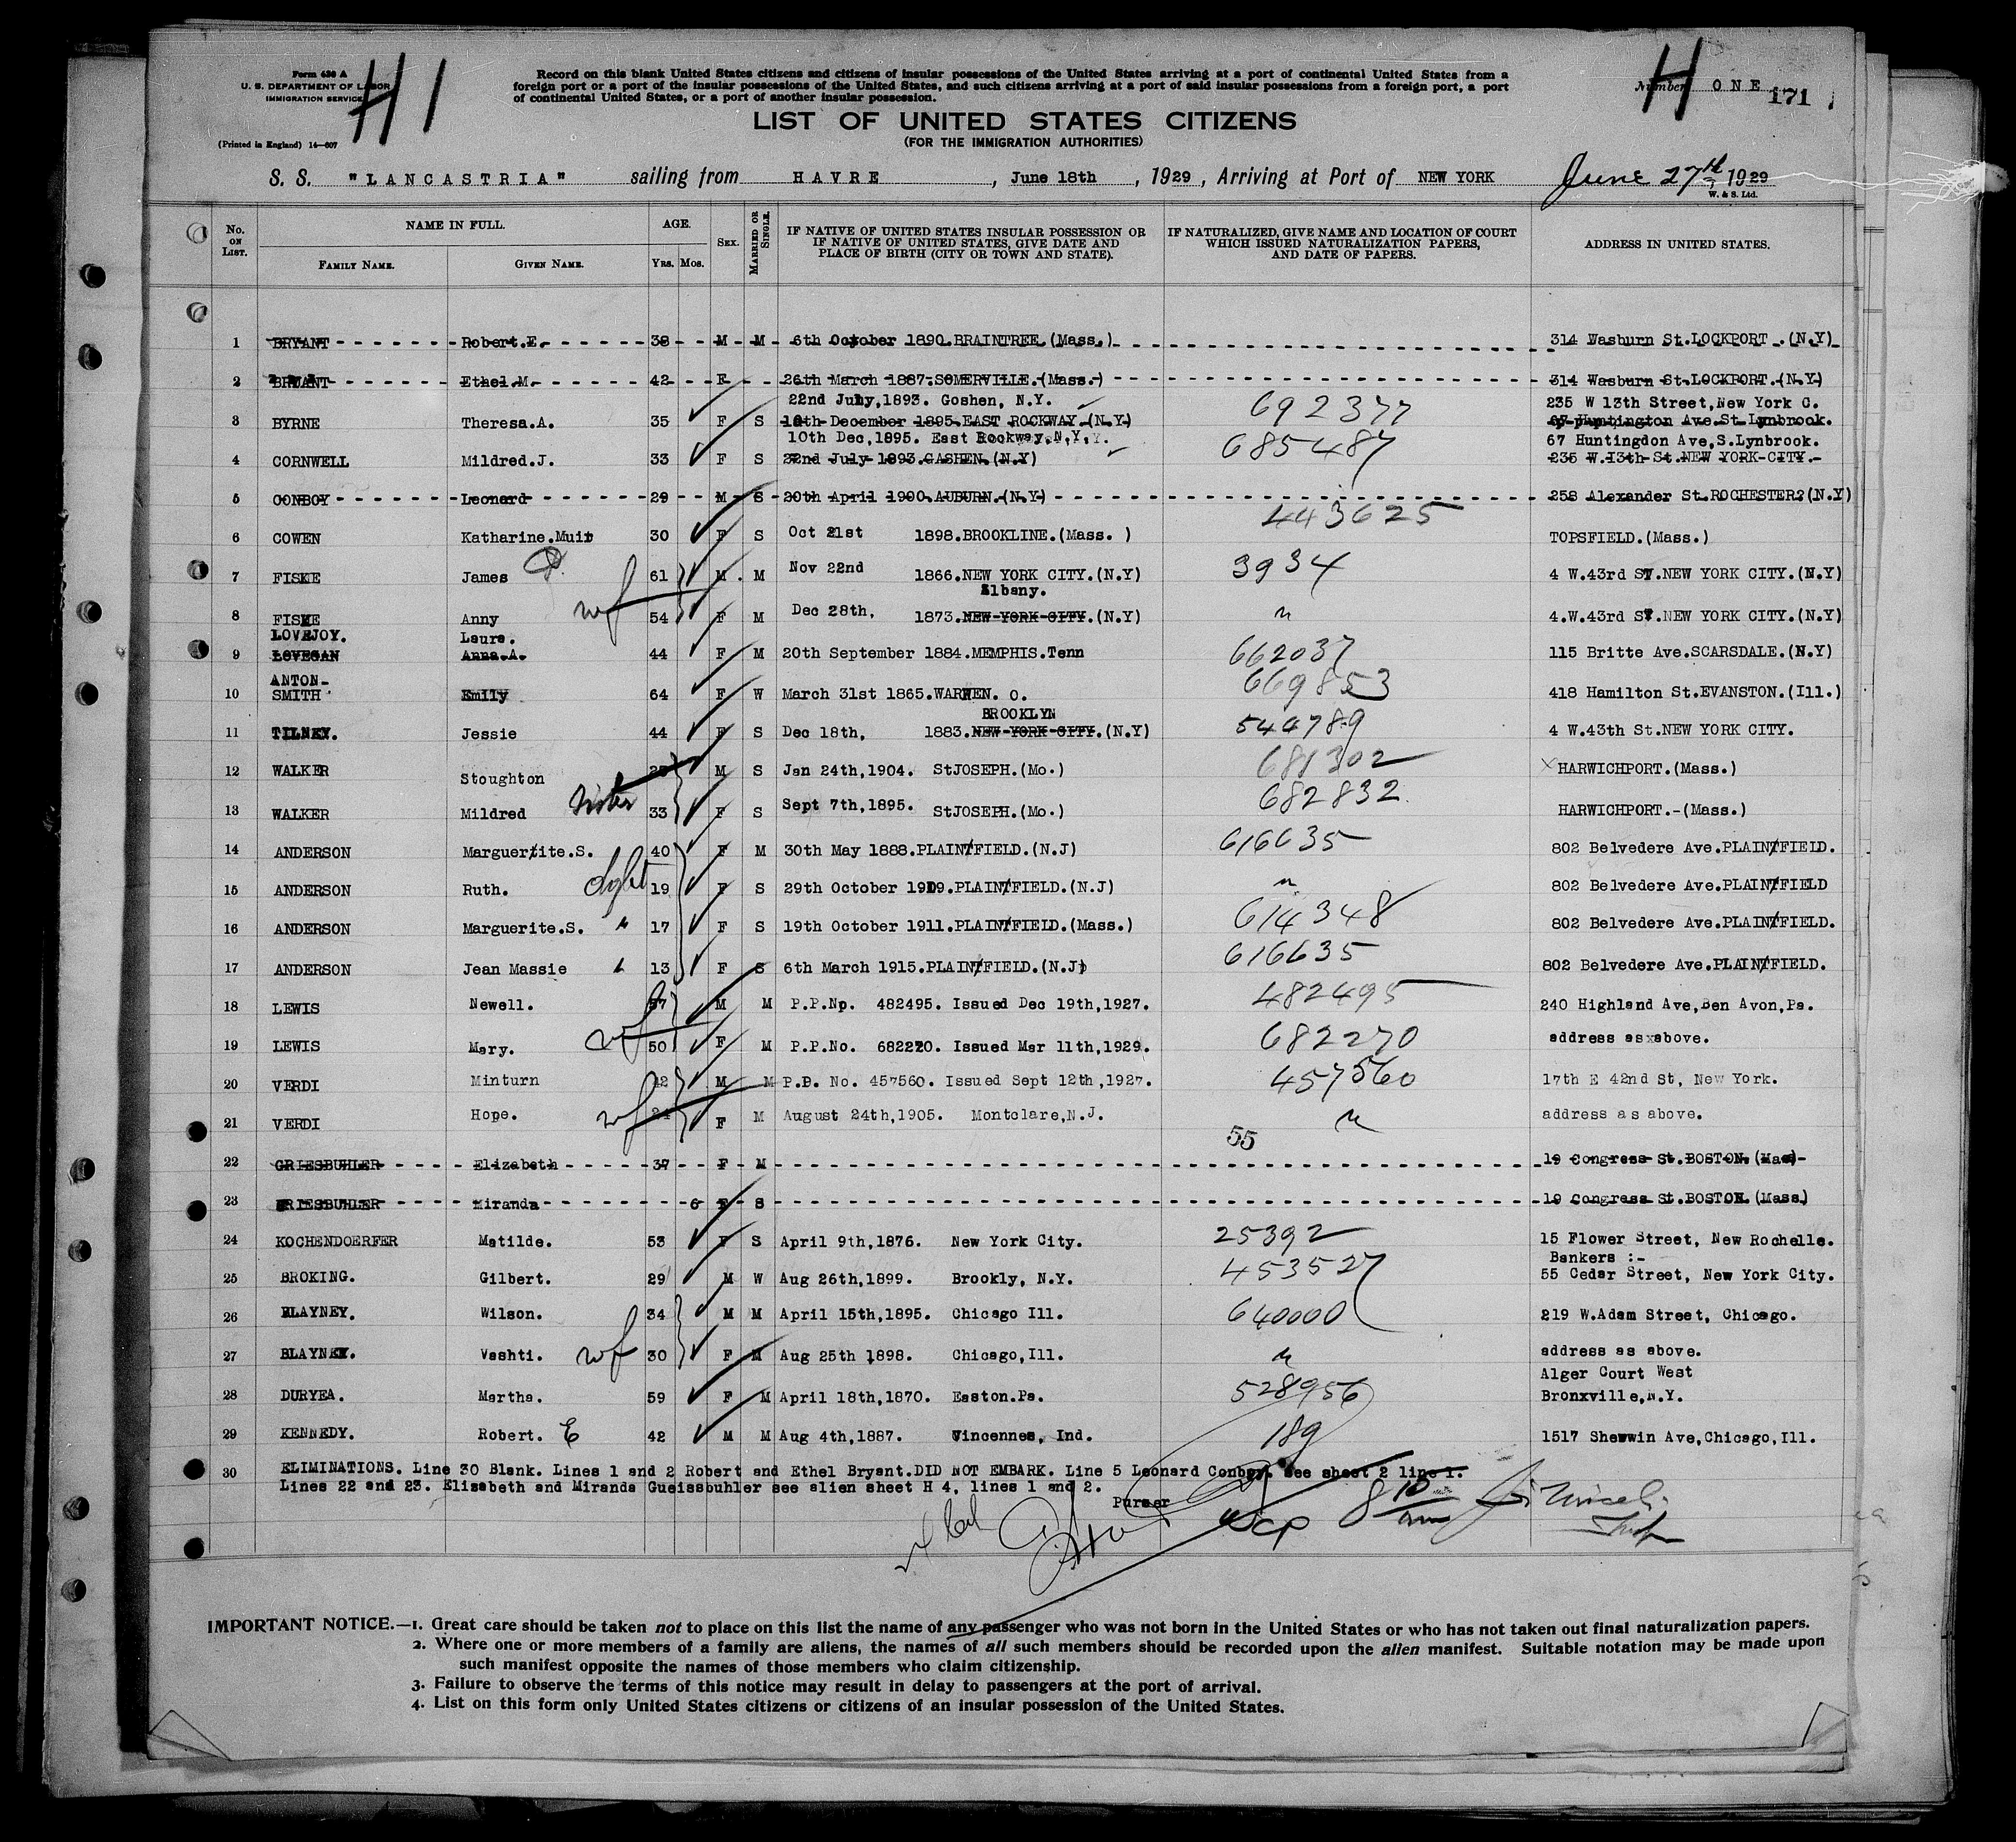 Form 630 A
U. S. DEPARTMENT OF LABOR
IMMIGRATION SERVICE
(Printed in England) 14—607
H1
Record on this blank United States citizens and citizens of insular possessions of the United States arriving at a port of continental United States from a
foreign port or a port of the insular possessions of the United States, and such citizens arriving at a port of said insular possessions from a foreign port, a port
of continental United States, or a port of another insular possession.
H
Number ONE 171
LIST OF UNITED STATES CITIZENS
(FOR THE IMMIGRATION AUTHORITIES)
S. S. "LANCASTRIA" sailing from HAVRE, June 18th, 1929, Arriving at Port of NEW YORK June 27th 1929
W. & S. Ltd.
No. ON LIST. NAME IN FULL. FAMILY NAME. GIVEN NAME. AGE. Yrs. Mos. SEX. MARRIED OR SINGLE. IF NATIVE OF UNITED STATES INSULAR POSSESSION OR IF NATIVE OF UNITED STATES, GIVE DATE AND PLACE OF BIRTH (CITY OR TOWN AND STATE). IF NATURALIZED, GIVE NAME AND LOCATION OF COURT WHICH ISSUED NATURALIZATION PAPERS, AND DATE OF PAPERS. ADDRESS IN UNITED STATES.
1 BRYANT Robert.E. 38 M M 6th October 1890.BRAINTREE.(Mass.) 314 Wasburn St.LOCKPORT.(N.Y)
2 BRYANT Ethel.M. 42 F 26th March 1887.SOMERVILLE.(Mass.) 314 Wasburn St.LOCKPORT.(N.Y)
22nd July,1893. Goshen, N.Y. 692377 235 W 13th Street,New York C.
3 BYRNE Theresa.A. 35 F S 10th December 1895.EAST ROCKWAY.(N.Y) 67 Huntington Ave.St.Lynbrook.
10th Dec,1895. East Rockway,N,Y,Y. 685487 67 Huntingdon Ave,S.Lynbrook.
4 CORNWELL Mildred.J. 33 F S 22nd July 1893.GASHEN.(N.Y) 235 W.13th St.NEW YORK CITY.
5 CONBOY Leonard 29 M S 20th April 1900.AUBURN.(N.Y) 258 Alexander St.ROCHESTER?(N.Y)
6 COWEN Katharine.Muir 30 F S Oct 21st 1898.BROOKLINE.(Mass. ) 443625 TOPSFIELD.(Mass.)
7 FISKE James P. 61 M. M Nov 22nd 1866.NEW YORK CITY.(N.Y) 3934 4 W.43rd ST.NEW YORK CITY.(N.Y)
Albany.
8 FISKE Anny wf 54 F M Dec 28th, 1873.NEW YORK CITY.(N.Y) " 4.W.43rd ST.NEW YORK CITY.(N.Y)
LOVEJOY. Laura.
9 LOVEGAN Anna.A. 44 F M 20th September 1884.MEMPHIS.Tenn 662037 115 Britte Ave.SCARSDALE.(N.Y)
ANTON-
10 SMITH Emily 64 F W March 31st 1865.WARREN. O. 669853 418 Hamilton St.EVANSTON.(Ill.)
BROOKLYN
11 TILNEY. Jessie 44 F S Dec 18th, 1883.NEW YORK CITY.(N.Y) 544789 4 W.43th St.NEW YORK CITY.
12 WALKER Stoughton 25 M S Jan 24th,1904. StJOSEPH.(Mo.) 681302 HARWICHPORT.(Mass.)
13 WALKER Mildred Sister 33 F S Sept 7th,1895. StJOSEPH.(Mo.) 682832 HARWICHPORT.-(Mass.)
14 ANDERSON Marguerite.S. 40 F M 30th May 1888.PLAINFIELD.(N.J) 616635 802 Belvedere Ave.PLAINFIELD.
15 ANDERSON Ruth. dght 19 F S 29th October 1909.PLAINFIELD.(N.J) " 802 Belvedere Ave.PLAINFIELD
16 ANDERSON Marguerite.S. " 17 F S 19th October 1911.PLAINFIELD.(Mass.) 614348 802 Belvedere Ave.PLAINFIELD.
17 ANDERSON Jean Massie " 13 F S 6th March 1915.PLAINFIELD.(N.J) 616635 802 Belvedere Ave.PLAINFIELD.
18 LEWIS Newell. 57 M M P.P.Np. 482495. Issued Dec 19th,1927. 482495 240 Highland Ave,Ben Avon,Pa.
19 LEWIS Mary. wf 50 F M P.P.No. 682270. Issued Mar 11th,1929. 682270 address asxabove.
20 VERDI Minturn 42 M M P.P. No. 457560. Issued Sept 12th,1927. 457560 17th E 42nd St, New York.
21 VERDI Hope. wf 24 F M August 24th,1905. Montclare,N.J. " address as above.
55
22 GRIESBUHLER Elizabeth 37 F M 19 Congress St.BOSTON.(Mass)
23 GRIESBUHLER Miranda 6 F S 19 Congress St.BOSTON.(Mass)
24 KOCHENDOERFER Matilde. 53 F S April 9th,1876. New York City. 25392 15 Flower Street, New Rochelle.
Bankers :-
25 BROKING. Gilbert. 29 M W Aug 26th,1899. Brookly, N.Y. 453527 55 Cedar Street, New York City.
26 BLAYNEY. Wilson. 34 M M April 15th,1895. Chicago Ill. 640000 219 W.Adam Street, Chicago.
27 BLAYNEY. Vashti. wf 30 F M Aug 25th 1898. Chicago,Ill. " address as above.
Alger Court West
28 DURYEA. Martha. 59 F M April 18th,1870. Easton.Pa. 528956 Bronxville,N.Y.
29 KENNEDY. Robert. E 42 M M Aug 4th,1887. Vincennes, Ind. 189 1517 Shewwin Ave,Chicago,Ill.
30 ELIMINATIONS. Line 30 Blank. Lines 1 and 2 Robert and Ethel Bryant.DID NOT EMBARK. Line 5 Leonard Conboy. see sheet 2 line 1.
Lines 22 and 23. Elisabeth and Miranda Gueissbuhler see alien sheet H 4, lines 1 and 2.
Purser
8 10 am
IMPORTANT NOTICE.—1. Great care should be taken not to place on this list the name of any passenger who was not born in the United States or who has not taken out final naturalization papers.
2. Where one or more members of a family are aliens, the names of all such members should be recorded upon the alien manifest. Suitable notation may be made upon
such manifest opposite the names of those members who claim citizenship.
3. Failure to observe the terms of this notice may result in delay to passengers at the port of arrival.
4. List on this form only United States citizens or citizens of an insular possession of the United States.